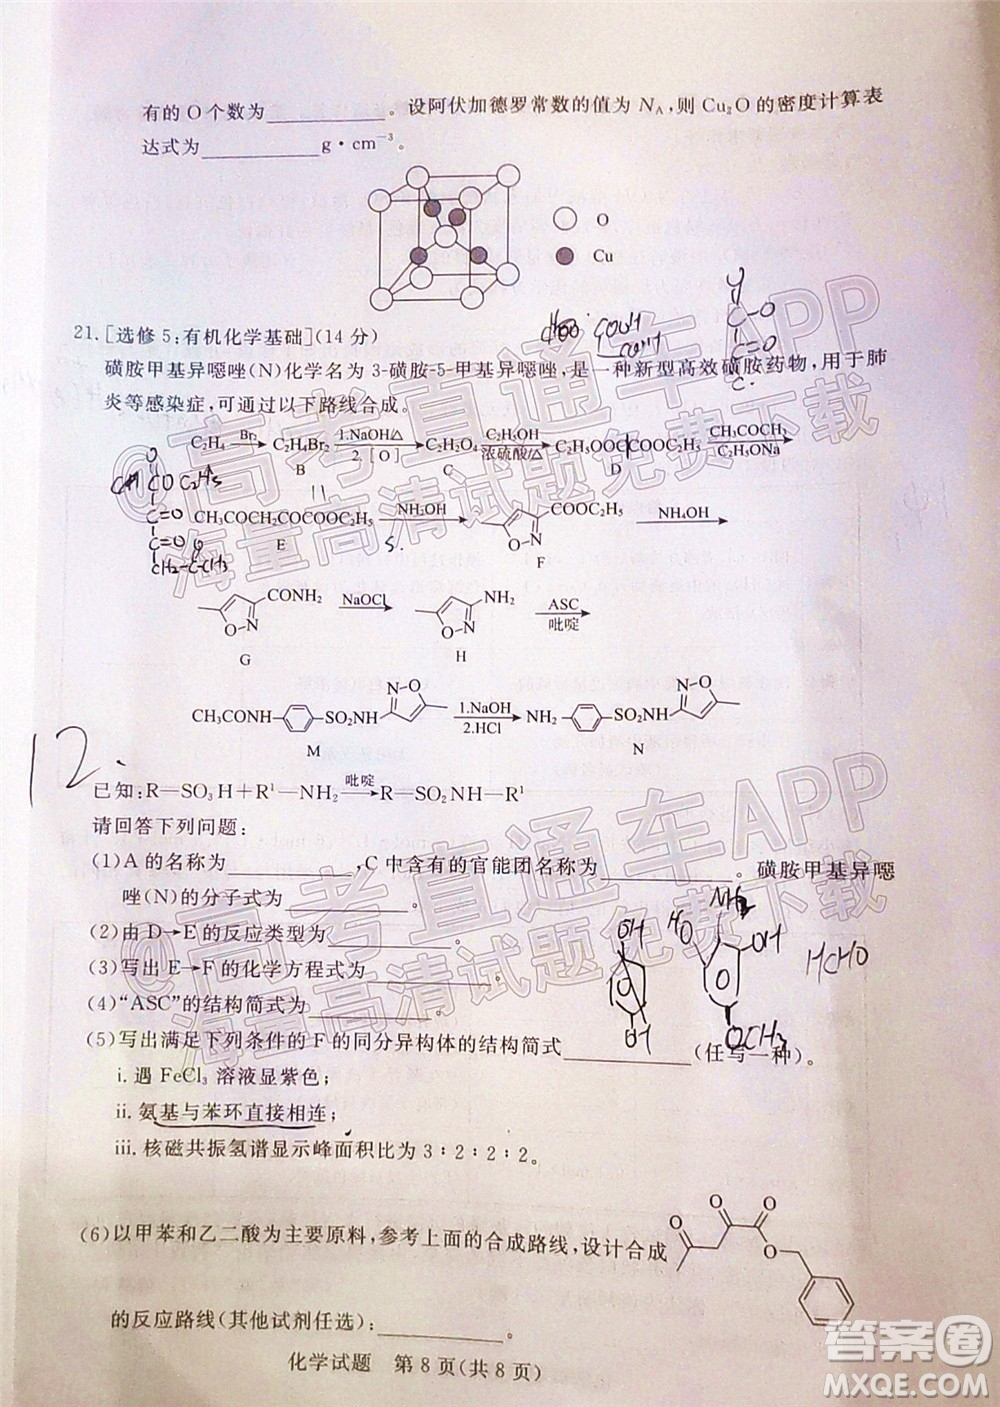 有的O个数为________。设阿伏加德罗常数的值为 N_A,则 Cu₂O 的密度计算表
达式为________g·cm⁻³。
O
Cu
21.[选修5:有机化学基础](14分)
磺胺甲基异噁唑(N)化学名为3-磺胺-5-甲基异噁唑,是一种新型高效磺胺药物,用于肺
炎等感染症,可通过以下路线合成。
C₂H₄ Br₂ C₂H₄Br₂ 1.NaOH/△ 2.[O] C₂H₂O₄ C₂H₅OH 浓硫酸/△ C₂H₅OOCCOOC₂H₅ CH₃COCH₃ C₂H₅ONa
B C D
CH₃COCH₂COCOOC₂H₅ NH₂OH COOC₂H₅ NH₄OH
E F
CONH₂ NaOCl NH₂ ASC 吡啶
G H
CH₃CONH SO₂NH 1.NaOH 2.HCl NH₂ SO₂NH
M N
12.
已知:R—SO₃H+R¹—NH₂ 吡啶 R=SO₂NH—R¹
请回答下列问题:
(1)A的名称为________,C中含有的官能团名称为________。磺胺甲基异噁
唑(N)的分子式为________。
(2)由D→E的反应类型为________。
(3)写出E→F的化学方程式为________。
(4)“ASC”的结构简式为________。
(5)写出满足下列条件的F的同分异构体的结构简式________(任写一种)。
OH
OH
HO
NH₂
OH
OCH₃
HCHO
i.遇FeCl₃溶液显紫色;
ii.氨基与苯环直接相连;
iii.核磁共振氢谱显示峰面积比为3:2:2:2。
(6)以甲苯和乙二酸为主要原料,参考上面的合成路线,设计合成
的反应路线(其他试剂任选):________。
化学试题 第8页(共8页)
@高考直通车APP
海量高清试题免费下载
@高考直通车APP
海量高清试题免费下载
答案圈
MXQE.COM